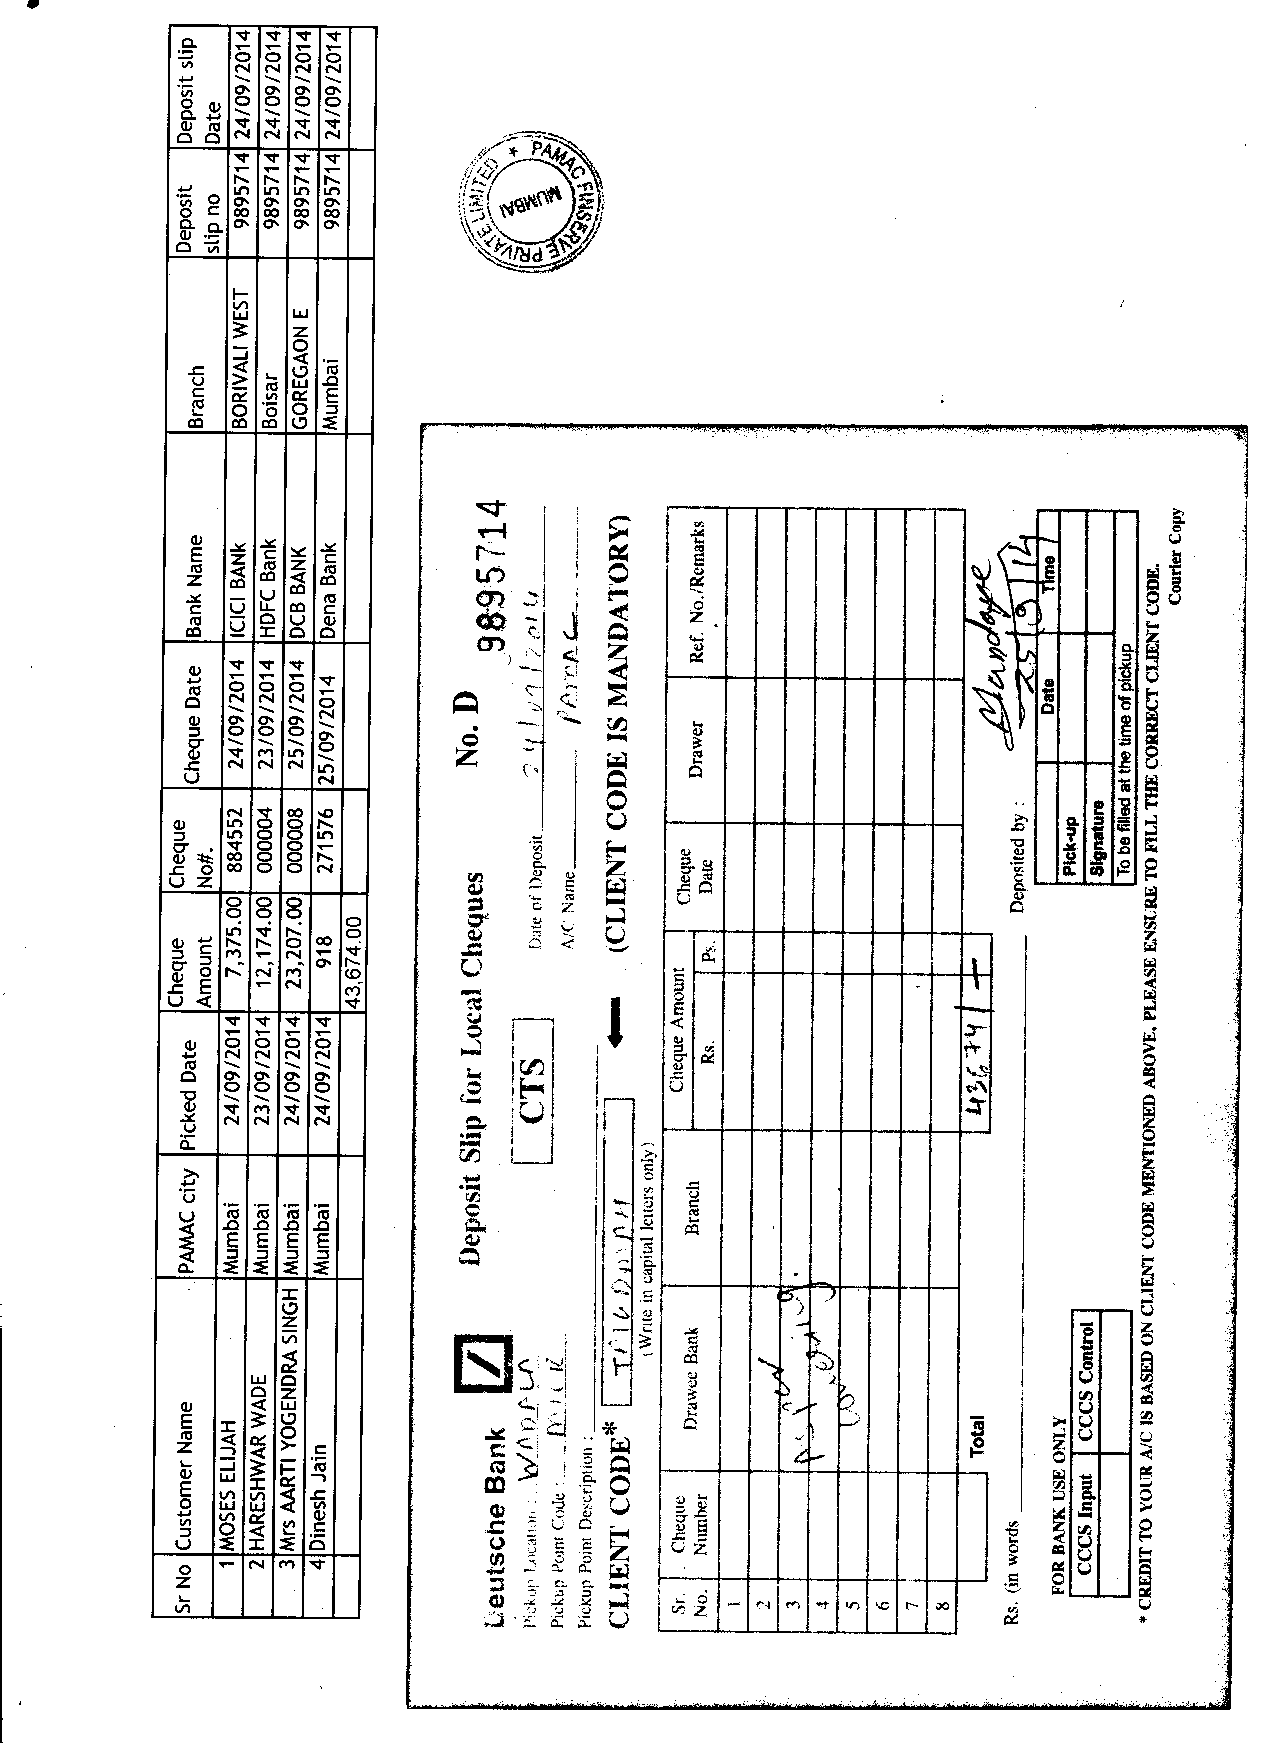 Sr No Customer Name PAMAC city Picked Date Cheque Amount Cheque No#. Cheque Date Bank Name Branch Deposit slip no Deposit slip Date
1 MOSES ELIJAH Mumbai 24/09/2014 7,375.00 884552 24/09/2014 ICICI BANk BORIVALI WEST 9895714 24/09/2014
2 HARESHWAR WADE Mumbai 23/09/2014 12,174.00 000004 23/09/2014 HDFC Bank Boisar 9895714 24/09/2014
3 Mrs AARTI YOGENDRA SINGH Mumbai 24/09/2014 23,207.00 000008 25/09/2014 DCB BANK GOREGAON E 9895714 24/09/2014
4 Dinesh Jain Mumbai 24/09/2014 918 271576 25/09/2014 Dena Bank Mumbai 9895714 24/09/2014
43,674.00
PAMAC FINSERVE PRIVATE LIMITED *
MUMBAI
Deutsche Bank Deposit Slip for Local Cheques No. D 9895714
Pickup Location : WADALA CTS Date of Deposit 24/09/2014
Pickup Point Code : A/C Name PAMAC
Pickup Point Description :
CLIENT CODE* (CLIENT CODE IS MANDATORY)
(Write in capital letters only)
Sr. No. Cheque Number Drawee Bank Branch Cheque Amount Rs. Ps. Cheque Date Drawer Ref. No./Remarks
1
2
3 As Per
4
5
6
7
8
Total 43674/-
Rs. (in words Deposited by :
25/9/14
Date Time
Pick-up
Signature
To be filled at the time of pickup
FOR BANK USE ONLY
CCCS Input CCCS Control
* CREDIT TO YOUR A/C IS BASED ON CLIENT CODE MENTIONED ABOVE, PLEASE ENSURE TO FILL THE CORRECT CLIENT CODE.
Courier Copy